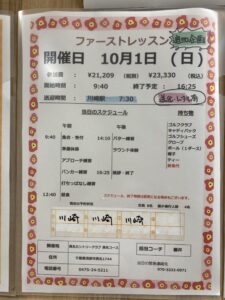 ファーストレッスン
開催日 10月1日 (日)
参加費 : ¥21,209 (税別) ¥23,330 (税込)
開始時間 : 9:40 終了予定 : 16:25
送迎時間 : 川崎駅 7:30
当日のスケジュール 持ち物
午前 午後
9:40 集合・受付 14:10 パター練習
準備体操 ラウンド体験
アプローチ練習
バンカー練習 16:25 挨拶・終了
打ちっぱなし練習
12:40 昼食
ゴルフクラブ
キャディバック
ゴルフシューズ
グローブ
ボール(1ダース)
帽子
ティー
川崎 川崎 川崎
開催地
住所
電話番号 0475-24-5211
担当コーチ 藤井